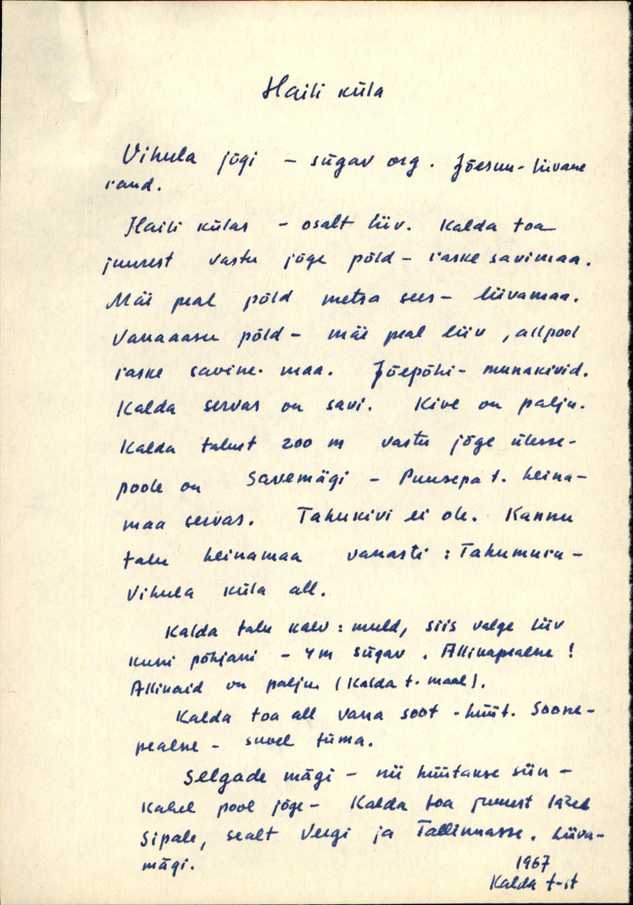 Haili küla
Vihula jõgi - sügav org. Jõesuu - liivane
rand.
Haili külas - osalt liiv. Kalda toa
juurest vastu jõge põld - raske savimaa.
Mäe peal põld metsa sees - liivamaa.
Vanaaasu põld - mäe peal liiv, allpool
raske savine maa. Jõepõhi - munakivid.
Kalda servas on savi. Kive on palju.
Kalda talust 200 m vastu jõge ülesse-
poole on Savemägi - Puusepa t. heina-
maa servas. Tahukivi ei ole. Kannu
talu heinamaa vanasti: Tahumuru -
Vihula küla all.
Kalda talu kaev: muld, siis valge liiv
kuni põhjani - 4 m sügav. Allikapealne!
Allikaid on palju (Kalda t. maal).
Kalda toa all vana soot - hüüt. Soone-
pealne - suvel tüma.
Selgade mägi - nii hüütakse siin -
kahel pool jõge - Kalda toa juurest läheb
Sipale, sealt Vergi ja Tallinnasse. Liiva-
mägi.
1967
Kalda t-st